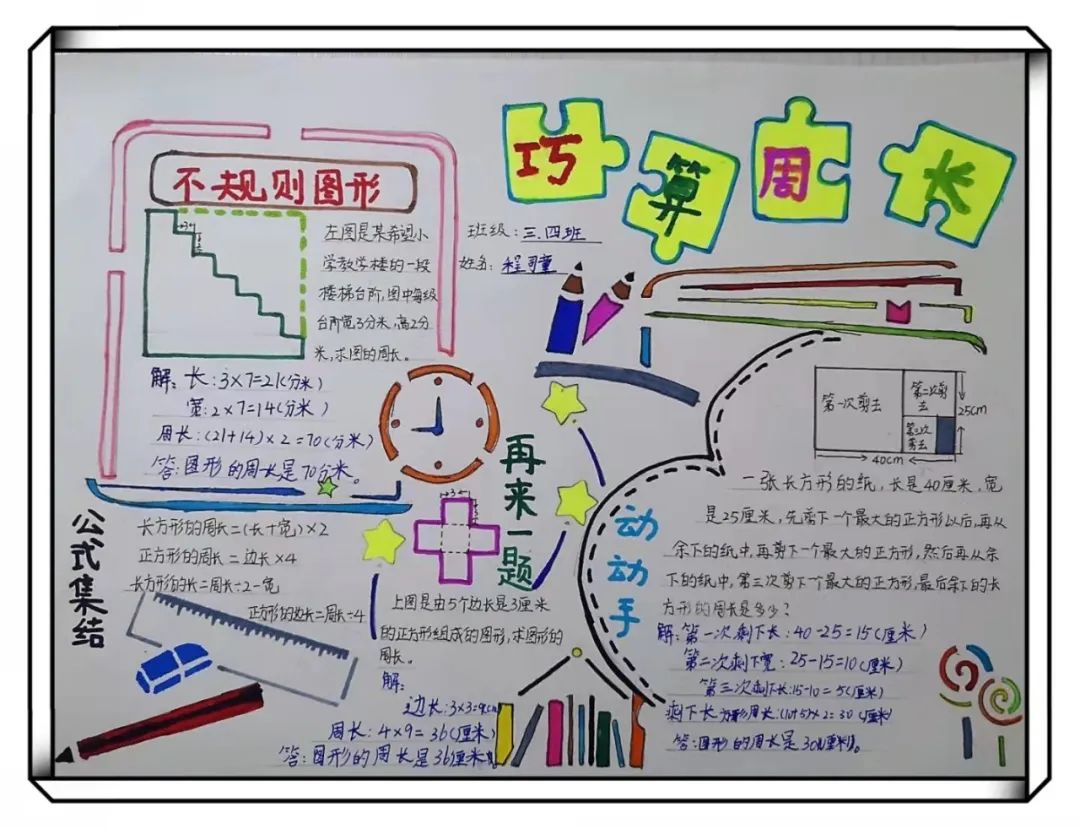 巧算周长
班级：三.四班
姓名：程可童
不规则图形
3
左图是某希望小
学教学楼的一段
楼梯台阶，图中每级
台阶宽3分米，高2分
米，求图的周长。
解：长：3×7=21（分米）
宽：2×7=14（分米）
周长：（21+14）×2=70（分米）
答：图形的周长是70分米。
公式集结
长方形的周长=（长+宽）×2
正方形的周长=边长×4
长方形的长=周长÷2-宽
正方形的边长=周长÷4
再来一题
3
上图是由5个边长是3厘米
的正方形组成的图形，求图形的
周长。
解：
边长：3×3=9cm
周长：4×9=36（厘米）
答：图形的周长是36厘米。
动动手
第一次剪去
第二次剪
去
第三次
剪去
25cm
40cm
一张长方形的纸，长是40厘米，宽
是25厘米，先剪下一个最大的正方形以后，再从
余下的纸中，再剪下一个最大的正方形，然后再从余
下的纸中，第三次剪下一个最大的正方形，最后余下的长
方形的周长是多少？
解：第一次剩下长：40-25=15（厘米）
第二次剩下宽：25-15=10（厘米）
第三次剩下长：15-10=5（厘米）
剩下长方形周长：（10+5）×2=30（厘米）
答：图形的周长是30（厘米）。